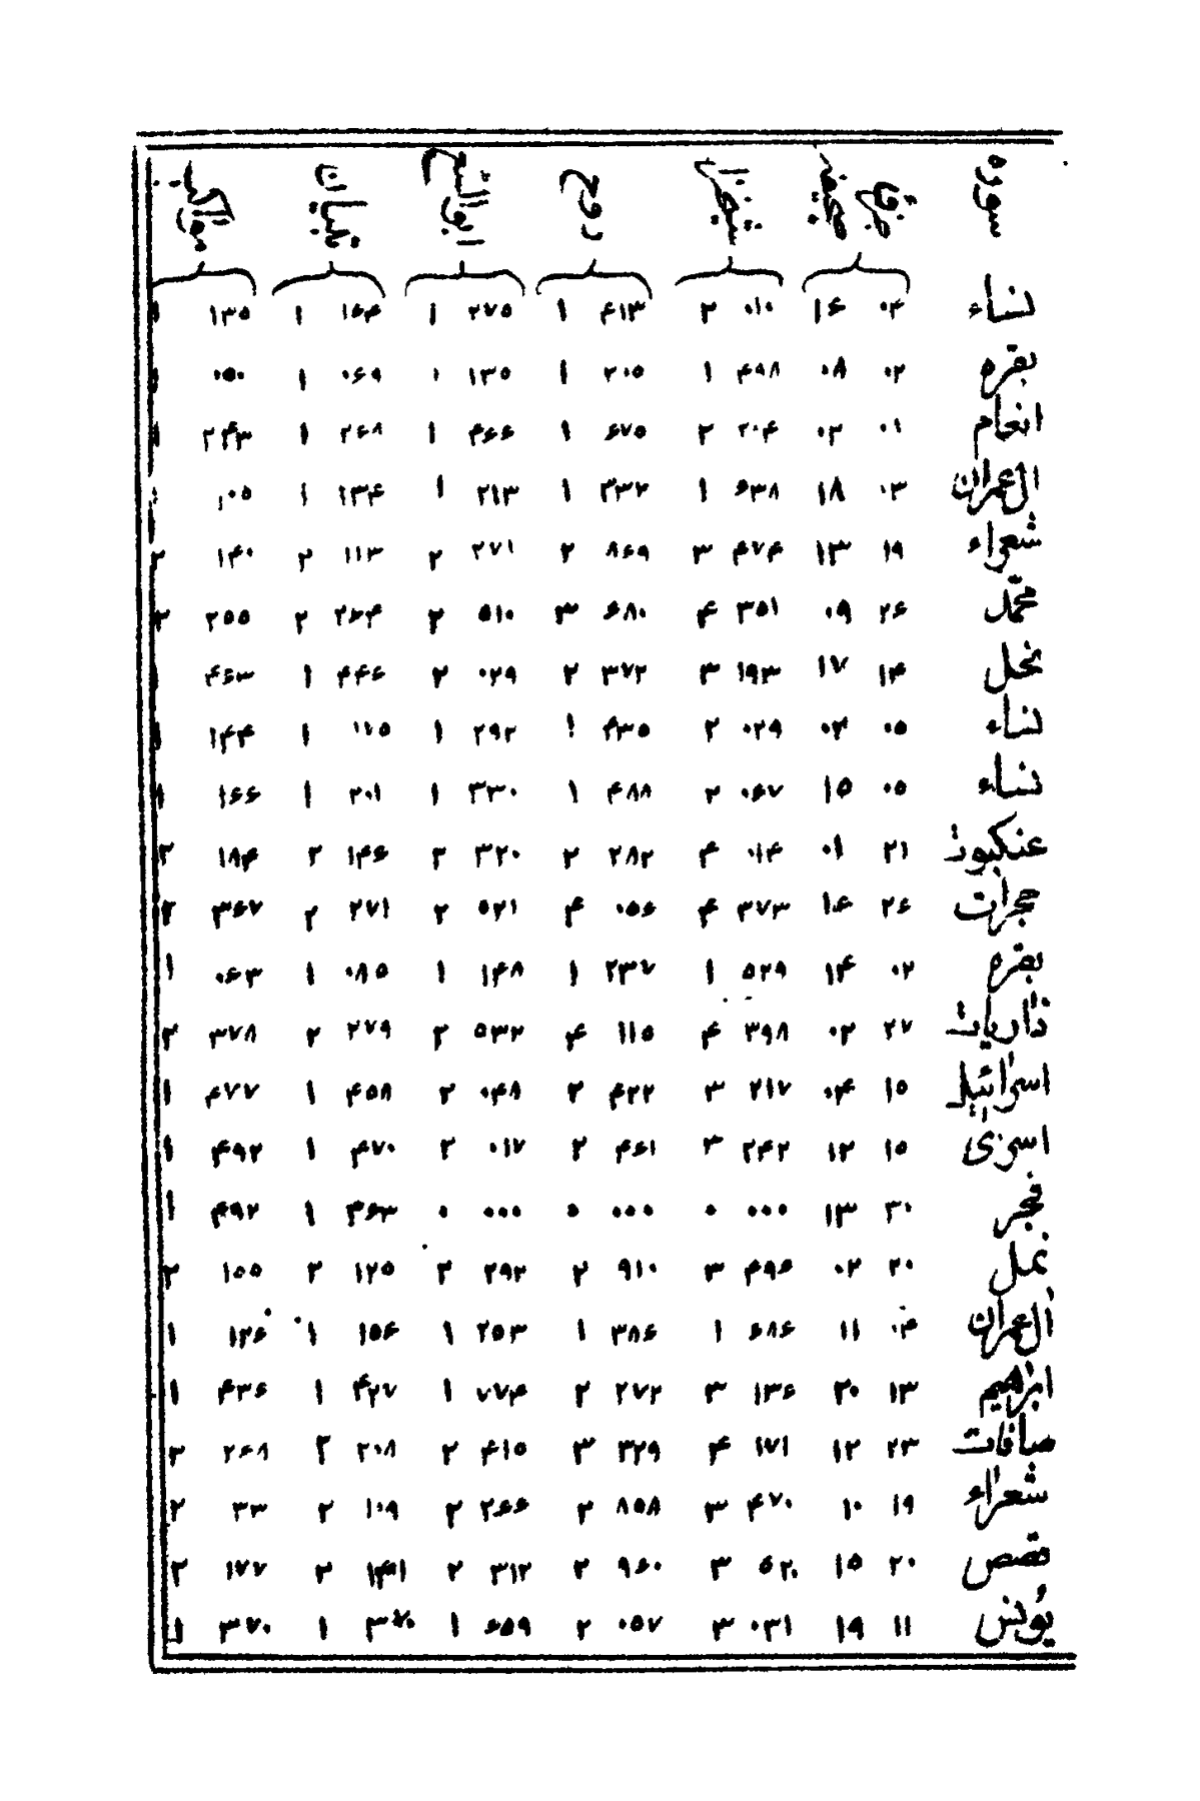 سوره جزوقا صحیفه شیخزاده روح ابوالسعود تبیان مواکب
نساء ۰۴ ۱۶ ۰۱۰ ۲ ۴۱۳ ۱ ۲۷۵ ۱ ۱۶۴ ۱ ۱۳۵ ۱
بقره ۰۲ ۰۸ ۴۹۸ ۱ ۲۰۵ ۱ ۱۳۵ ۱ ۰۶۹ ۱ ۰۵۰ ۱
انعام ۰۱ ۰۲ ۲۰۴ ۲ ۶۷۵ ۱ ۴۶۶ ۱ ۲۶۸ ۱ ۲۴۳ ۱
ال عمران ۰۳ ۱۸ ۶۳۸ ۱ ۳۳۲ ۱ ۲۱۳ ۱ ۱۳۴ ۱ ۱۰۵ ۱
شعراء ۱۹ ۱۳ ۴۷۴ ۳ ۸۶۹ ۲ ۲۷۱ ۲ ۱۱۳ ۲ ۱۴۰ ۲
محمد ۲۶ ۰۹ ۳۵۱ ۴ ۶۸۰ ۳ ۵۱۰ ۲ ۲۶۴ ۲ ۲۵۵ ۲
نحل ۱۴ ۱۷ ۱۹۳ ۳ ۳۷۲ ۲ ۰۲۹ ۲ ۴۴۶ ۱ ۴۶۳ ۱
نساء ۰۵ ۰۲ ۰۲۹ ۲ ۴۳۵ ۱ ۲۹۲ ۱ ۱۷۵ ۱ ۱۴۴ ۱
نساء ۰۵ ۱۵ ۰۶۷ ۲ ۴۸۸ ۱ ۳۳۰ ۱ ۲۰۱ ۱ ۱۶۶ ۱
عنکبوت ۲۱ ۰۱ ۰۱۴ ۴ ۲۸۲ ۲ ۳۲۰ ۲ ۱۴۶ ۲ ۱۸۴ ۲
حجرات ۲۶ ۱۶ ۳۷۳ ۴ ۰۵۶ ۴ ۵۲۱ ۲ ۲۷۱ ۲ ۳۶۷ ۲
بقره ۰۲ ۱۴ ۵۲۹ ۱ ۲۳۷ ۱ ۱۴۸ ۱ ۰۸۵ ۱ ۰۶۳ ۱
ذاریات ۲۷ ۰۲ ۳۹۸ ۴ ۱۱۵ ۴ ۵۳۲ ۲ ۲۷۹ ۲ ۳۷۸ ۲
اسرائیل ۱۵ ۰۴ ۲۱۷ ۳ ۴۲۲ ۲ ۰۴۸ ۲ ۴۵۸ ۱ ۴۷۷ ۱
اسری ۱۵ ۱۲ ۲۴۲ ۳ ۴۶۱ ۲ ۰۱۷ ۲ ۴۷۰ ۱ ۴۹۲ ۱
فجر ۳۰ ۱۳ ۰۰۰ ۰ ۰۰۰ ۰ ۰۰۰ ۰ ۳۶۳ ۱ ۴۹۲ ۱
نمل ۲۰ ۰۲ ۴۹۶ ۳ ۹۱۰ ۲ ۲۹۲ ۲ ۱۲۵ ۲ ۱۵۵ ۲
ال عمران ۰۴ ۱۱ ۶۸۶ ۱ ۳۸۶ ۱ ۲۵۳ ۱ ۱۵۶ ۱ ۱۲۶ ۱
ابراهیم ۱۳ ۲۰ ۱۳۶ ۳ ۲۷۲ ۲ ۷۷۴ ۱ ۴۲۷ ۱ ۴۳۶ ۱
صافات ۲۳ ۱۲ ۱۷۱ ۴ ۳۲۹ ۳ ۴۱۵ ۲ ۲۰۸ ۲ ۲۶۸ ۲
شعراء ۱۹ ۱۰ ۴۷۰ ۳ ۸۵۸ ۲ ۲۶۶ ۲ ۱۰۹ ۲ ۳۳ ۲
قصص ۲۰ ۱۵ ۵۲۰ ۳ ۹۶۰ ۲ ۳۱۲ ۲ ۱۴۱ ۲ ۱۷۷ ۲
یونس ۱۱ ۱۹ ۰۳۱ ۳ ۰۵۷ ۲ ۶۵۹ ۱ ۳۷۰ ۱ ۳۷۰ ۱